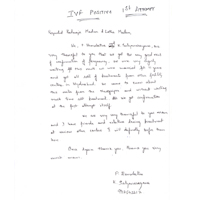 IVF POSITIVE 1ST ATTEMPT
Respected Padmaja Madam & Latha Madam,
Hi, & Satyanarayana, are
very thankful to you that we got the very good news
of confirmation of pregnancy. We are very eagerly
waiting for this event we are married for 6 years
and got all sort of treatments from other fertility
centers in Hyderabad. we came to know about
this centre from the and without wasting
much time will treatment. So we got confirmation
at the first attempt itself.
we are very very thankful to you madam
and I have friends and relatives taking treatment
at various other centres I will definitely refer them
here.
Once Again thank you thank you very
much madam.
P.
&
P. Satyanarayana